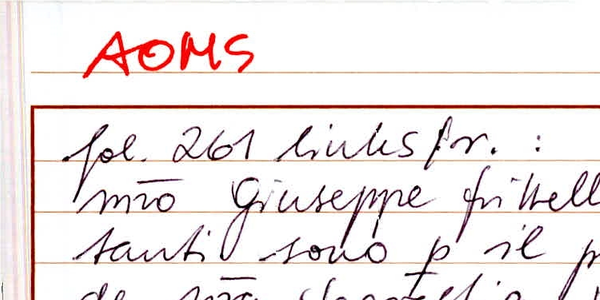 AOMS
fol. 261 links/r. :
mro Giuseppe frittell
santi sono p il p
de mra